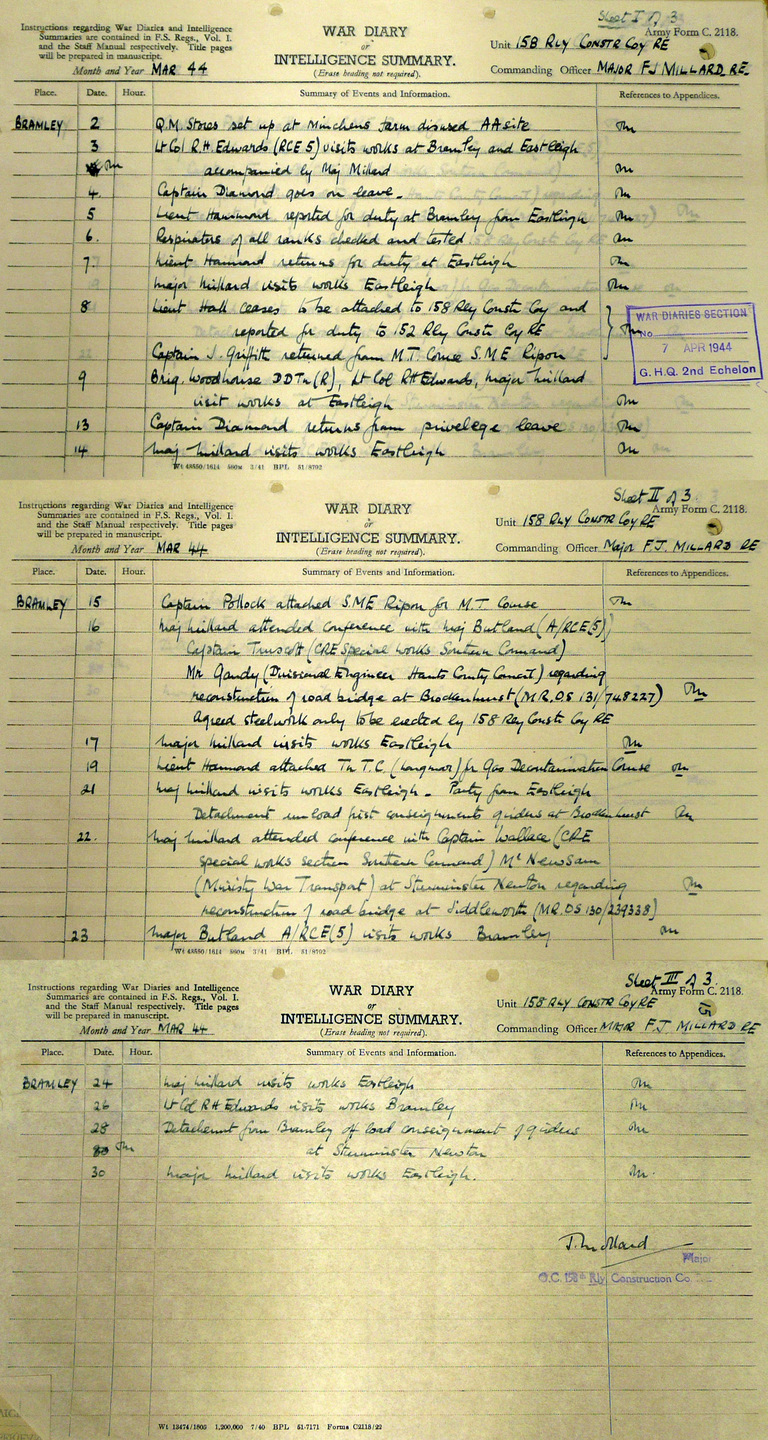 Sheet I of 3
Instructions regarding War Diaries and Intelligence
Summaries are contained in F.S. Regs., Vol. I.
and the Staff Manual respectively. Title pages
will be prepared in manuscript.
Month and Year MAR 44
WAR DIARY
or
INTELLIGENCE SUMMARY.
(Erase heading not required).
Army Form C. 2118.
Unit 158 Rly CONSTR Coy RE
Commanding Officer MAJOR F.J MILLARD RE
Place. Date. Hour. Summary of Events and Information. References to Appendices.
BRAMLEY 2 Q.M. Stores set up at Minchens farm disused AA site
3 Lt Col R.H. Edwards (RCE 5) visits works at Bramley and Eastleigh
accompanied by Maj Millard
4. Captain Diamond goes on leave.
5 Lieut Hammond reported for duty at Bramley from Eastleigh
6. Respirators of all ranks checked and tested
7. Lieut Hammond returns for duty at Eastleigh
Major Millard visits works Eastleigh
8 Lieut Hall ceases to be attached to 158 Rly Constr Coy and
reported for duty to 152 Rly Constr Coy RE
Captain J. Griffith returned from M.T. Course S.M.E Ripon
9 Brig. Woodhouse DDTn (R), Lt Col RH Edwards, Major Millard
visit works at Eastleigh
13 Captain Diamond returns from privelege leave
14 Maj Millard visits works Eastleigh
WAR DIARIES SECTION
No
7 APR 1944
G.H.Q. 2nd Echelon
Wt 48550/1614 560M 3/41 BPL 51/8792
Sheet II of 3
Instructions regarding War Diaries and Intelligence
Summaries are contained in F.S. Regs., Vol. I.
and the Staff Manual respectively. Title pages
will be prepared in manuscript.
Month and Year MAR 44
WAR DIARY
or
INTELLIGENCE SUMMARY.
(Erase heading not required).
Army Form C. 2118.
Unit 158 Rly CONSTR Coy RE
Commanding Officer Major F.J. MILLARD RE
Place. Date. Hour. Summary of Events and Information. References to Appendices.
BRAMLEY 15 Captain Pollock attached S.M.E Ripon for M.T. Course
16 Maj Millard attended conference with Maj Butland (A/RCE(5))
Captain Truscott (CRE Special works Southern Command)
Mr Gandy (Divisional Engineer Hants County Council) regarding
reconstruction of road bridge at Brockenhurst (M.R. OS 131/748227)
Agreed steelwork only to be erected by 158 Rly Constr Coy RE
17 Major Millard visits works Eastleigh
19 Lieut Hammond attached Tn T.C. (Longmoor) for Gas Decontamination Course
21 Maj Millard visits works Eastleigh - Party from Eastleigh
Detachment unload first consignments girders at Brockenhurst
22. Maj Millard attended conference with Captain Wallace (CRE
special works section Southern Command) Mr Newsam
(Ministry War Transport) at Sturminster Newton regarding
reconstruction of road bridge at Fiddleworth (MR. OS 130/239338)
23 Major Butland A/RCE(5) visits works Bramley
Wt 48550/1614 560M 3/41 BPL 51/8792
Sheet III of 3.
Instructions regarding War Diaries and Intelligence
Summaries are contained in F.S. Regs., Vol. I.
and the Staff Manual respectively. Title pages
will be prepared in manuscript.
Month and Year MAR 44
WAR DIARY
or
INTELLIGENCE SUMMARY.
(Erase heading not required).
Army Form C. 2118.
Unit 158 RLY CONSTR Coy RE
Commanding Officer MAJOR F.J MILLARD RE
Place. Date. Hour. Summary of Events and Information. References to Appendices.
BRAMLEY 24 Maj Millard visits works Eastleigh
26 Lt Col RH Edwards visits works Bramley
28 Detachment from Bramley off load consignment of girders
at Sturminster Newton
30 Major Millard visits works Eastleigh.
Major
O.C. 158th Rly. Construction Co.
Wt 13474/1806 1,200,000 7/40 BPL 51-7171 Forms C2118/22